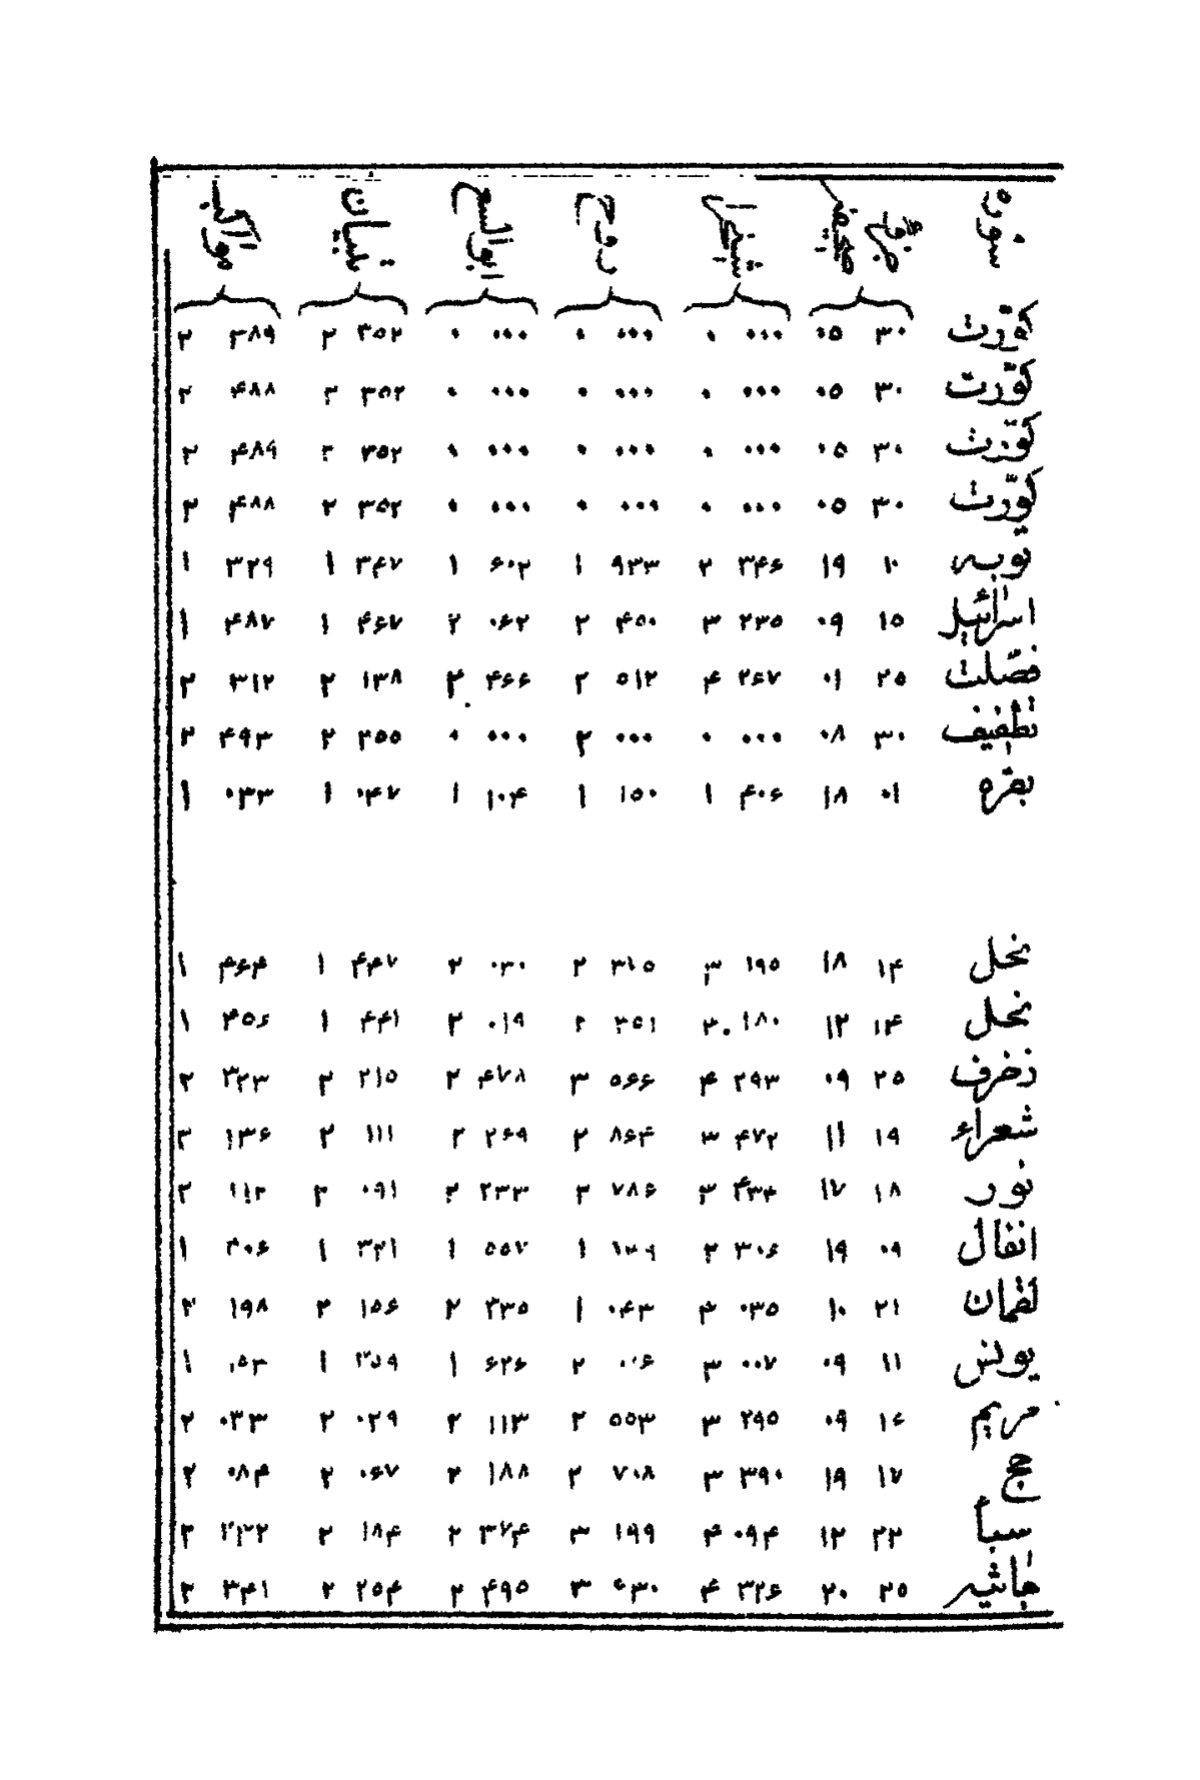 سوره جزؤ صحیفه شیخزا روح ابوالسع تبیان مواکب
کوّرت ۳۰ ۰۵ ۰۰۰ ۰ ۰۰۰ ۰ ۰۰۰ ۰ ۳۵۲ ۲ ۳۸۹ ۲
کوّرت ۳۰ ۰۵ ۰۰۰ ۰ ۰۰۰ ۰ ۰۰۰ ۰ ۳۵۲ ۲ ۴۸۸ ۲
کوّرت ۳۰ ۰۵ ۰۰۰ ۰ ۰۰۰ ۰ ۰۰۰ ۰ ۳۵۲ ۲ ۴۸۹ ۲
کوّرت ۳۰ ۰۵ ۰۰۰ ۰ ۰۰۰ ۰ ۰۰۰ ۰ ۳۵۲ ۲ ۴۸۸ ۲
توبه ۱۰ ۱۹ ۳۴۶ ۲ ۹۳۳ ۱ ۶۰۲ ۱ ۳۴۷ ۱ ۳۲۹ ۱
اسرائیل ۱۵ ۰۹ ۲۳۵ ۳ ۴۵۰ ۲ ۰۶۲ ۲ ۴۶۷ ۱ ۴۸۷ ۱
فصّلت ۲۵ ۰۱ ۲۶۷ ۴ ۵۱۲ ۲ ۴۶۶ ۲ ۱۳۸ ۲ ۳۱۲ ۲
تطفیف ۳۰ ۰۸ ۰۰۰ ۰ ۰۰۰ ۲ ۰۰۰ ۰ ۲۵۵ ۲ ۴۹۳ ۲
بقره ۰۱ ۱۸ ۴۰۶ ۱ ۱۵۰ ۱ ۱۰۴ ۱ ۰۴۷ ۱ ۰۳۳ ۱
نحل ۱۴ ۱۸ ۱۹۵ ۳ ۳۱۵ ۲ ۰۳۰ ۲ ۴۴۷ ۱ ۴۶۴ ۱
نحل ۱۴ ۱۲ ۱۸۰ ۳ ۳۵۱ ۲ ۰۱۹ ۲ ۴۴۱ ۱ ۴۵۶ ۱
زخرف ۲۵ ۰۹ ۲۹۳ ۴ ۵۶۶ ۳ ۴۷۸ ۲ ۲۱۵ ۲ ۳۲۳ ۲
شعراء ۱۹ ۱۱ ۴۷۲ ۳ ۸۶۴ ۲ ۲۶۹ ۲ ۱۱۱ ۲ ۱۳۶ ۲
نور ۱۸ ۱۷ ۴۳۴ ۳ ۷۸۶ ۲ ۲۳۳ ۲ ۰۹۱ ۲ ۱۱۲ ۲
انفال ۰۹ ۱۹ ۳۰۶ ۲ ۱ ۵۵۷ ۱ ۳۲۱ ۱ ۳۰۶ ۱
لقمان ۲۱ ۱۰ ۰۳۵ ۴ ۰۴۳ ۱ ۳۳۵ ۲ ۱۵۶ ۲ ۱۹۸ ۲
یونس ۱۱ ۰۹ ۰۰۷ ۳ ۰۰۶ ۲ ۶۲۶ ۱ ۳۵۹ ۱ ۰۵۳ ۱
مریم ۱۶ ۰۹ ۲۹۵ ۳ ۵۵۳ ۲ ۱۱۳ ۲ ۰۲۹ ۲ ۰۳۳ ۲
حج ۱۷ ۱۹ ۳۹۰ ۳ ۷۰۸ ۲ ۱۸۸ ۲ ۰۶۷ ۲ ۰۸۴ ۲
سبأ ۲۲ ۱۲ ۰۹۴ ۴ ۱۹۹ ۳ ۳۷۴ ۲ ۱۸۴ ۲ ۲۳۲ ۲
جاثیه ۲۵ ۲۰ ۳۲۶ ۴ ۶۳۰ ۳ ۴۹۵ ۲ ۲۵۴ ۲ ۳۴۱ ۲